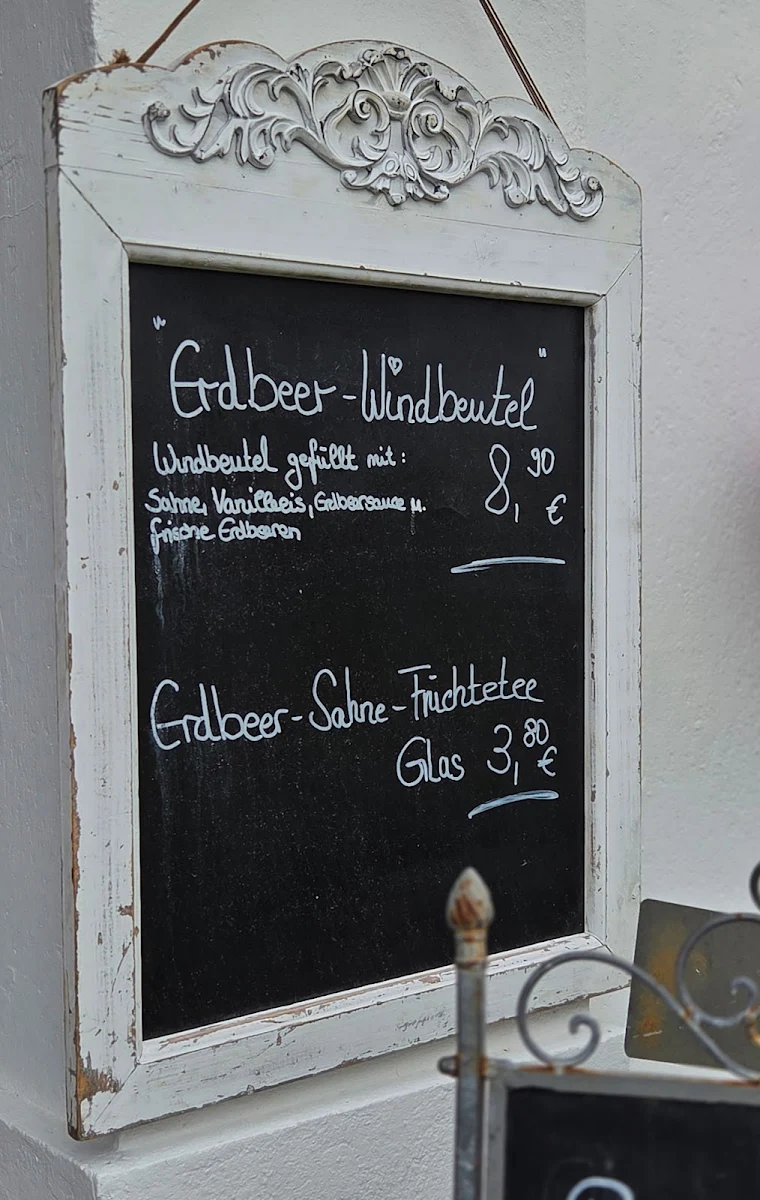 "Erdbeer-Windbeutel"
Windbeutel gefüllt mit:
Sahne, Vanilleeis, Erdbeersauce u.
frische Erdbeeren
8,90 €
Erdbeer-Sahne-Früchtetee
Glas 3,80 €